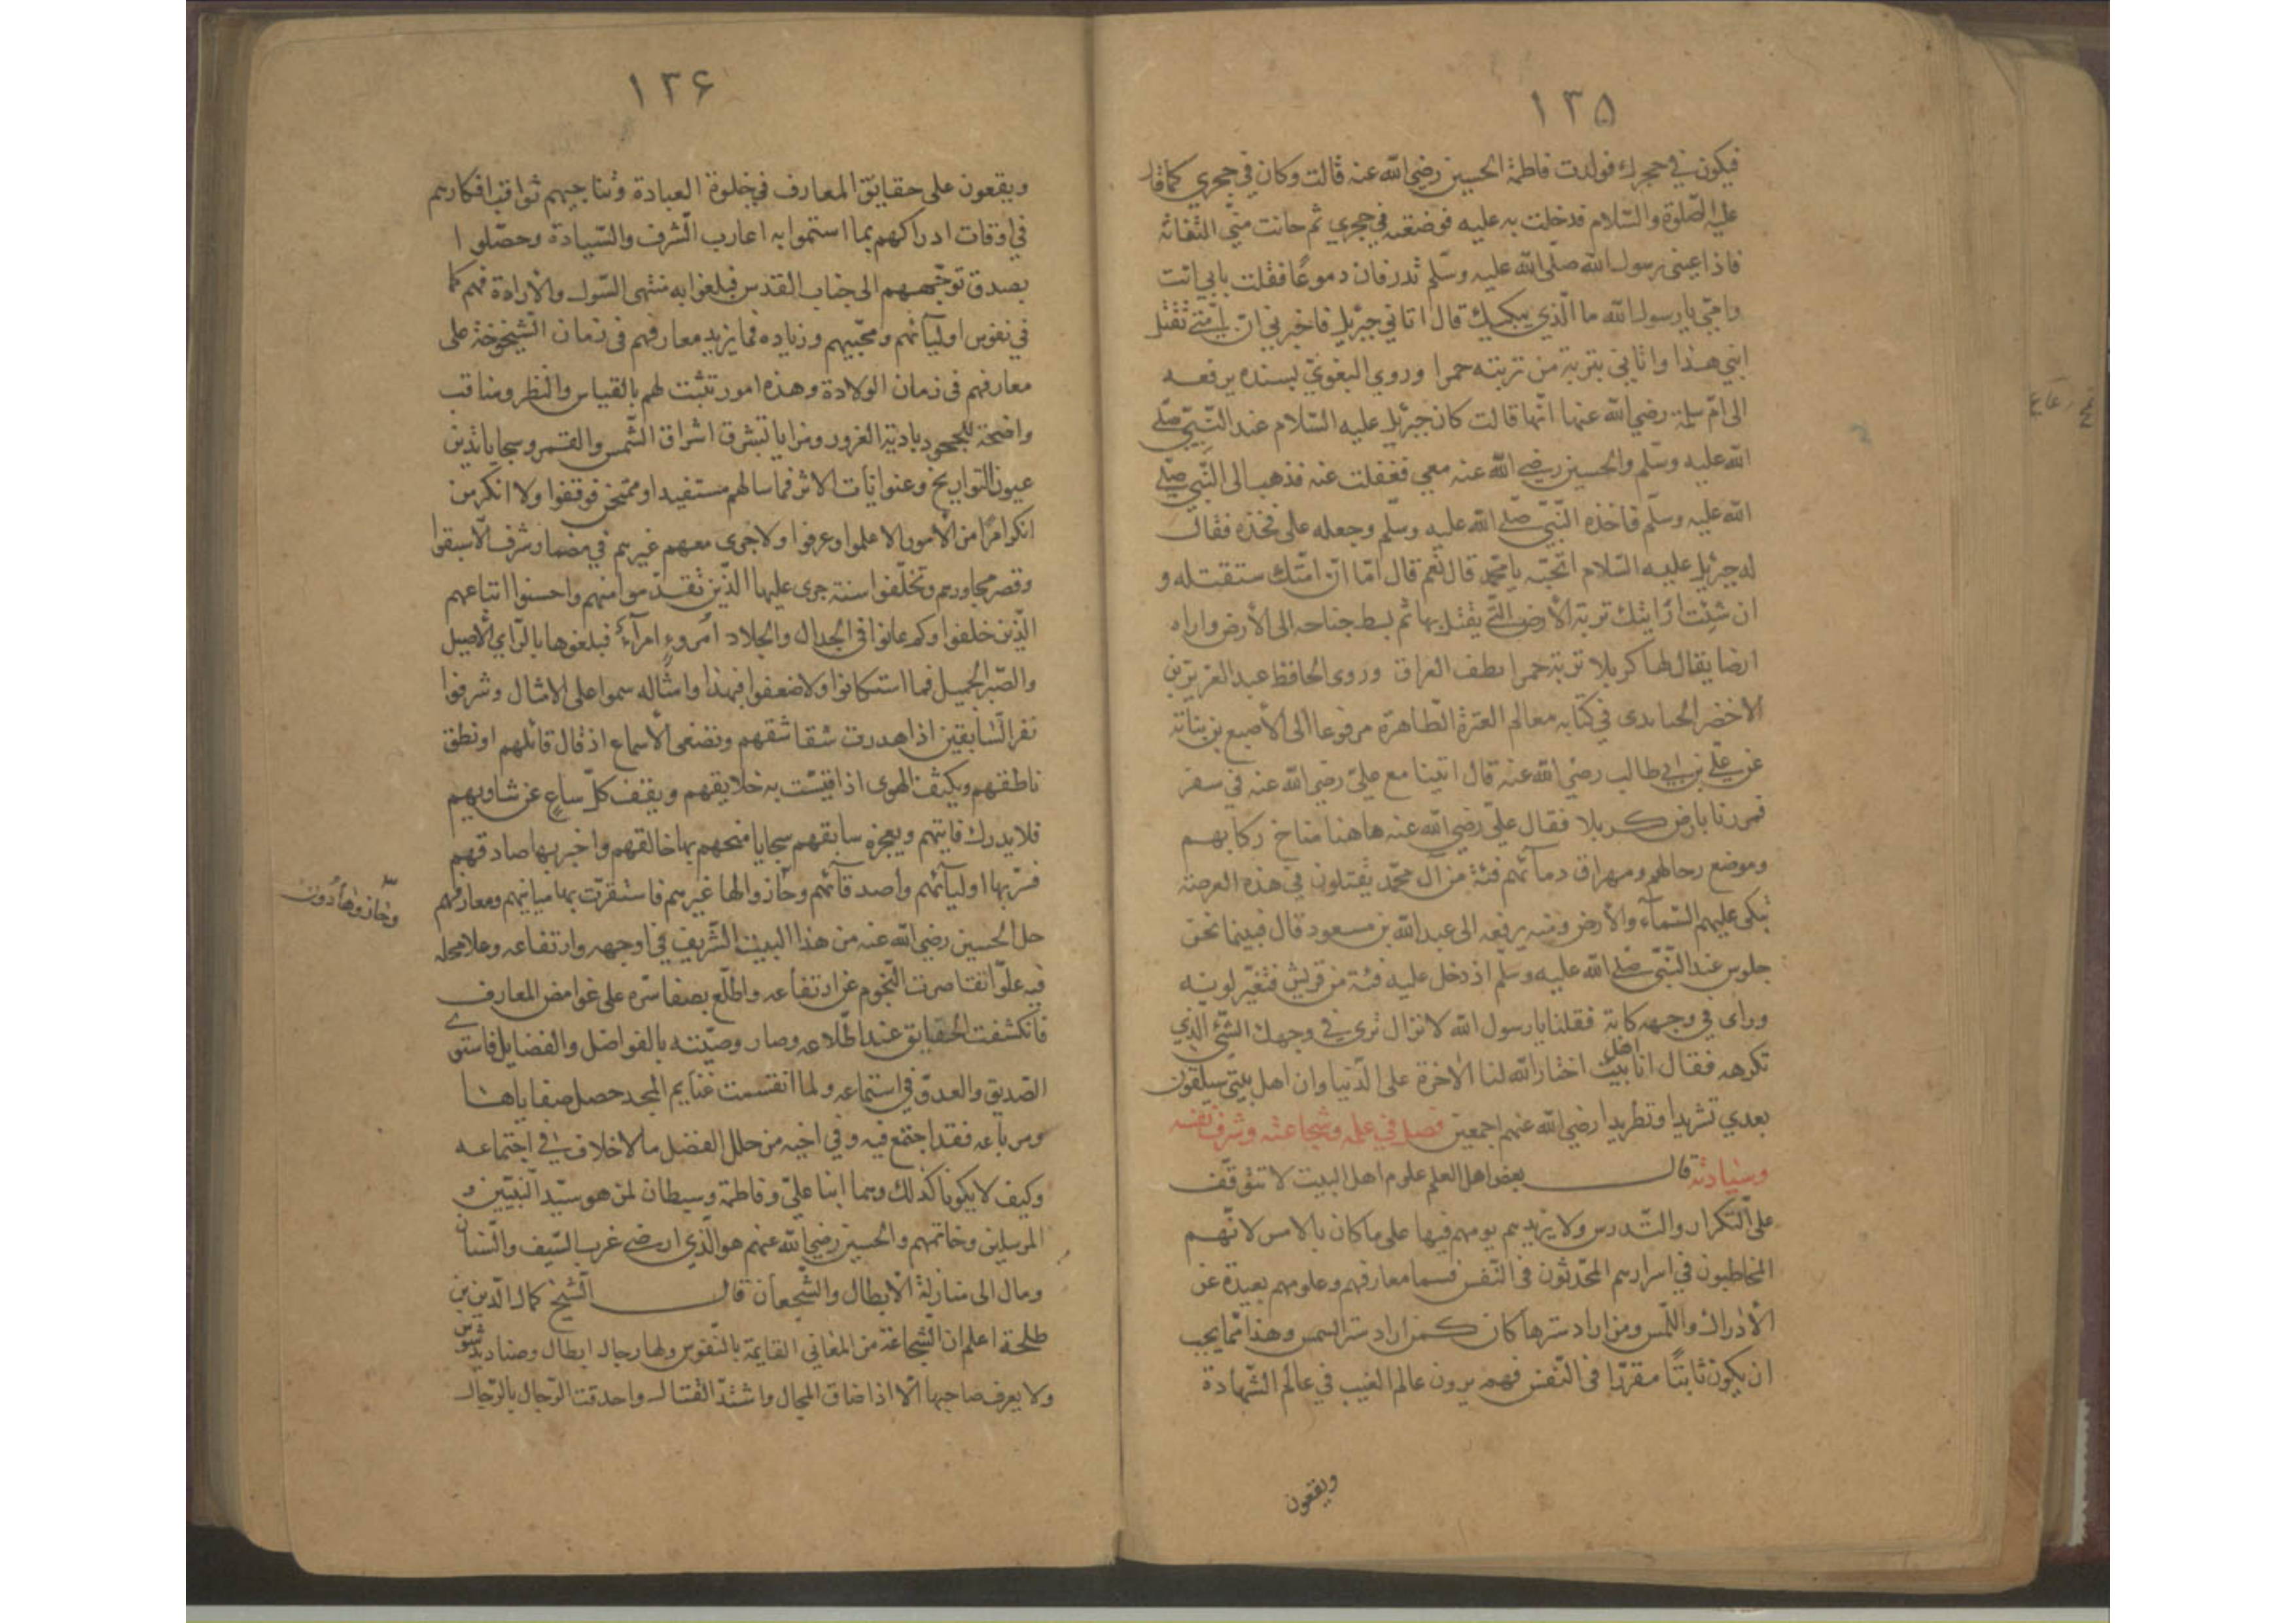 ١٣٥
فيكون في حجرك فولدت فاطمة الحسين رضي الله عنه قالت وكان في حجري كما قال
عليه الصلوة والسلام فدخلت به عليه فوضعته في حجري ثم حانت مني التفاتة
فاذا عيني رسول الله صلى الله عليه وسلم تدرفان دموعًا فقلت بابي انت
وامي يا رسول الله ما الذي يبكيك قال اتاني جبرئيل فاخبرني ان امتي تقتل
ابني هذا واتاني بتربة من تربته حمرا وروى البغوي بسنده يرفعه
الى ام سلمة رضي الله عنها انها قالت كان جبرئيل عليه السلام عند النبي صلى
الله عليه وسلم والحسين رضي الله عنه معي فغفلت عنه فذهب الى النبي صلى
الله عليه وسلم فاخذه النبي صلى الله عليه وسلم وجعله على فخذه فقال
له جبرئيل عليه السلام اتحبه يا محمد قال نعم قال اما ان امتك ستقتله و
ان شئت اريتك تربة الأرض التي يقتل بها ثم بسط جناحه الى الأرض واراه
ارضا يقال لها كربلا تربة حمرا بطف العراق وروى الحافظ عبد العزيز بن
الاخضر الجنابدى في كتابه معالم العترة الطاهرة مرفوعا الى الأصبغ بن نباتة
عن علي بن ابي طالب رضي الله عنه قال اتينا مع علي رضي الله عنه في سفر
فمررنا بارض كربلا فقال علي رضي الله عنه هاهنا مناخ ركابهم
وموضع رحالهم ومهراق دمائهم فئة من آل محمد يقتلون في هذه العرصة
تبكى عليهم السماء والأرض ومنه يرفعه الى عبد الله بن مسعود قال فبينما نحن
جلوس عند النبي صلى الله عليه وسلم اذ دخل عليه فئة من قريش فتغير لونه
وراى في وجهه كابة فقلنا يا رسول الله لا نزال نرى في وجهك الشئ الذي
تكرهه فقال انا اهل بيت اختار الله لنا الاخرة على الدنيا وان اهل بيتي سيلقون
بعدي تشريدا وتطريدا رضي الله عنهم اجمعين فصل في علمه وشجاعته وشرف نفسه
وسيادته قال بعض اهل العلم علوم اهل البيت لا تتوقف
على التكرار والتدرس ولا يزيد يومهم فيها على ما كان بالامس لانهم
المخاطبون في اسرارهم المحدثون فى النفس فسما معارفهم وعلومهم بعيدة عن
الأدراك واللمس ومن اراد سترها كان كمن اراد ستر الشمس وهذا مما يجب
ان يكون ثابتًا مقررا فى النفس فهم يرون عالم الغيب في عالم الشهادة
ويقعون
١٣۶
ويقعون على حقايق المعارف في خلوة العبادة وتناجيهم ثواقب افكارهم
في اوقات ادراكهم بما استموا به اعارب الشرف والسيادة وحصلوا
بصدق توجههم الى جناب القدس فبلغوا به منتهى السؤل والأرادة فهم كما
في نفوس اوليائهم ومحبيهم وزيادة فما يزيد معارفهم فى زمان الشيخوخة على
معارفهم فى زمان الولادة وهذه امور تثبت لهم بالقياس والنظر ومناقب
واضحة للجحود بادية الغرور ومزايا تشرق اشراق الشمس والقمر وسجايا تزين
عيون التواريخ وعنوانات الاثر فما سالهم مستفيد او ممتحن فوقفوا ولا انكر من
انكر امرًا من الأمور الا علموا وعرفوا ولا جرى معهم غيرهم في مضمار شرف الا سبقوا
وقصر مجاورهم وتخلفوا سنة جرى عليها الذين تقدموا منهم واحسنوا اتباعهم
الذين خلفوا وكم عانوا فى الجدال والجلاد امروء امراء فبلغوها بالراي الأصيل
والصبر الجميل فما استكانوا ولا ضعفوا فبهذا وامثاله سموا على الامثال وشرفوا
نقر السابقين اذا هدرت شقاشقهم وتصغى الأسماع اذ قال قائلهم او نطق
ناطقهم ويكثف الهوى اذا قيست به خلايقهم ويقف كل ساع عن شاويهم
فلا يدرك فايتهم ويعجزه سابقهم سجايا منحهم بها خالقهم واخبر بها صادقهم
فسر بها اوليائهم وأصدقائهم وحاز والها غيرهم فاستقرت بها مبانيهم ومعارفهم
وحاز وهادون
حل الحسين رضي الله عنه من هذا البيت الشريف في اوجهه وارتفاعه وعلا محله
فيه علوا تقاصرت النجوم عن ارتفاعه واطلع بصفا سره على غوامض المعارف
فانكشفت الحقايق عند اطلاعه وصار وصيته بالفواضل والفضايل فاستوى
الصديق والعدو في استماعه ولما انقسمت غنايم المجد حصل صفاياها
ومرباعه فقد اجتمع فيه وفي اخيه من خلل الفضل ما لا خلاف في اجتماعه
وكيف لا يكونا كذلك وهما ابنا علي وفاطمة وسبطان لمن هو سيد النبيين و
المرسلين وخاتمهم والحسين رضي الله عنهم هو الذي ارضى غرب السيف والسنان
ومال الى منازلة الأبطال والشجعان قال الشيخ كمال الدين بن
طلحة اعلم ان الشجاعة من المعاني القايمة بالنفوس ولها رجال ابطال وصناديد شوس
ولا يعرف صاحبها الا اذا ضاق المجال واشتد القتال واحدقت الرجال بالرجال